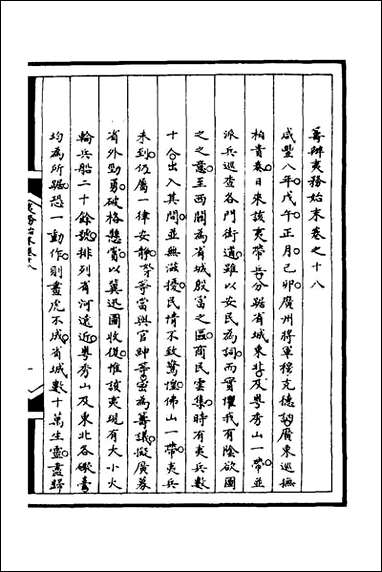 籌辦夷務始末卷之十八
咸豐八年戊午正月己卯廣州將軍穆克德訥廣東巡撫
柏貴奏日來該夷帶兵分踞省城東北及粵秀山一帶並
派兵巡查各門街道雖以安民為詞而實懼我有陰欲圖
之之意至西關為省城殷富之區商民雲集時有夷兵數
十合出入其間並無滋擾民情不致驚惶佛山一帶夷兵
未到仍屬一律安靜等當與官紳密為籌議擬廣募
省外勁勇破格懸賞以冀迅圖收復惟該夷現有大小火
輪兵船二十餘號排列省河遠近粵秀山及東北各礮臺
均為所踞恐一動作則畫虎不成省城數十萬生靈盡歸
夷務始末卷十八
一